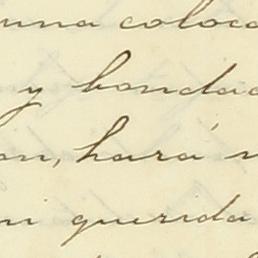 una coloca
y bondad
on, hará m
mi querida